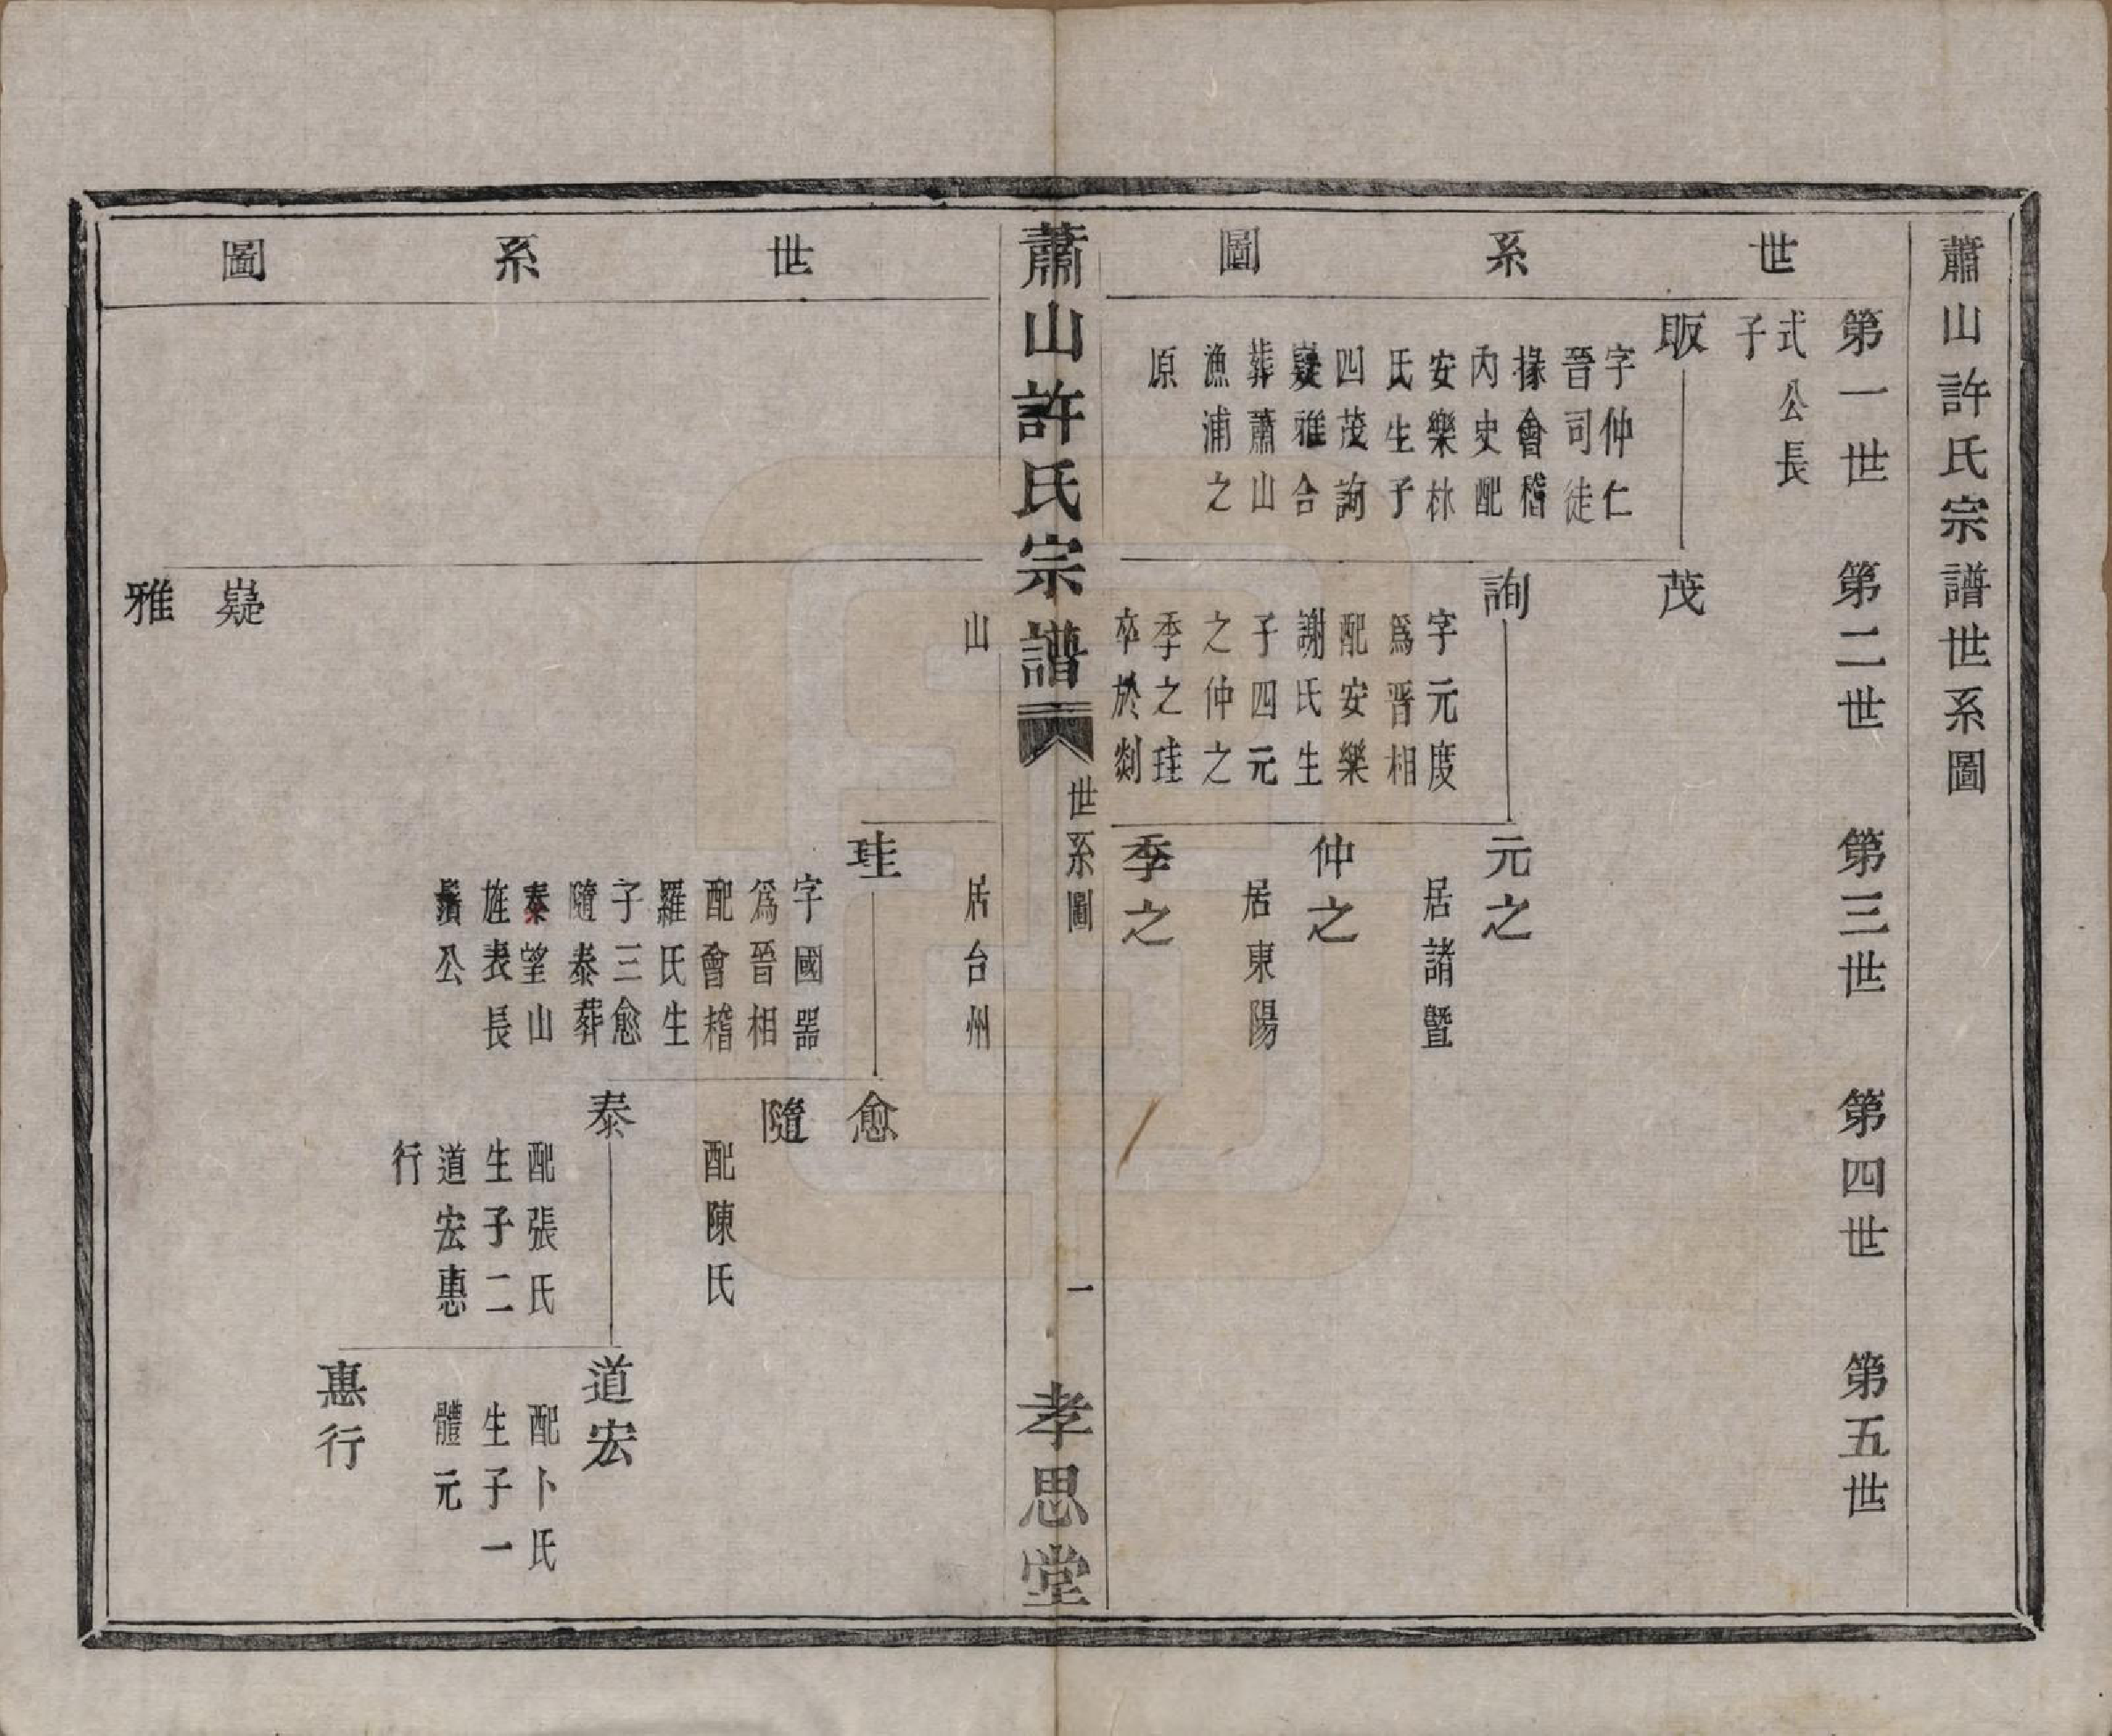 蕭山許氏宗譜世系圖
世系圖
第一世
第二世
第三世
第四世
第五世
式公長
子
昄
字仲仁
晉司徒
掾會稽
內史配
安樂林
氏生子
四茂詢
嶷雅合
葬蕭山
漁浦之
原
茂
詢
字元度
爲晉相
配安樂
謝氏生
子四元
之仲之
季之珪
卒於剡
山
元之
居諸暨
仲之
居東陽
季之
居台州
蕭山許氏宗譜
世系圖
一
孝思堂
世系圖
珪
字國器
爲晉相
配會稽
羅氏生
子三愈
隨泰葬
秦望山
旌表長
鬚公
愈
隨
配陳氏
泰
配張氏
生子二
道宏惠
行
道宏
配卜氏
生子一
體元
惠行
嶷
雅